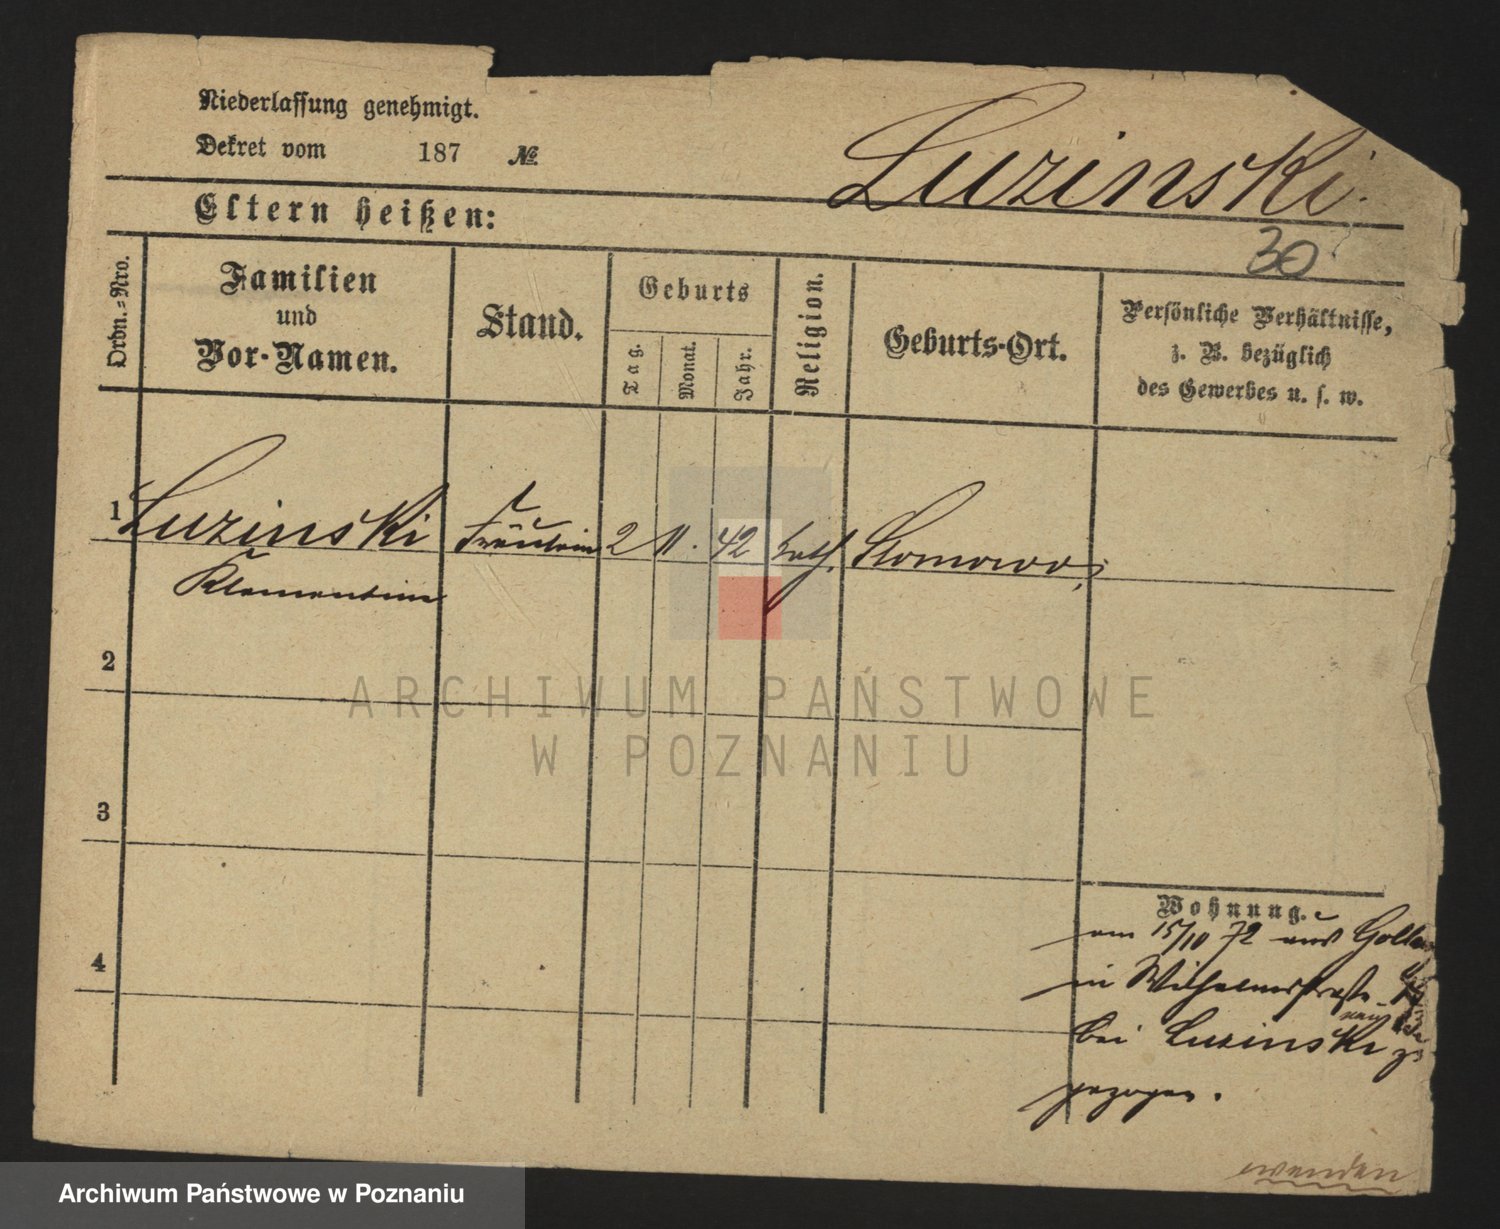 Niederlassung genehmigt.
Dekret vom 187 №.
Luzinski.
Eltern heißen:
30
Ordn.-Nro.
Familien
und
Vor-Namen.
Stand.
Geburts
Tag.
Monat.
Jahr.
Religion.
Geburts-Ort.
Persönliche Verhältnisse,
z. B. bezüglich
des Gewerbes u. s. w.
1 Luzinski Fräulein 2 11. 42 kath. Slomowo
Klementine
2
ARCHIWUM PAŃSTWOWE
W POZNANIU
3
4
Wohnung.
am 15/10 72 aus
in Wilhelmstraße
bei Luzinski
gezogen.
wenden
Archiwum Państwowe w Poznaniu